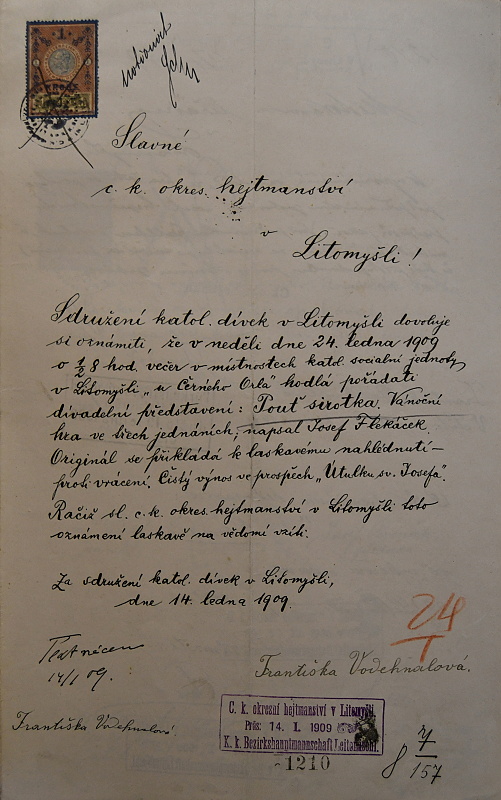 1
Slavné
c. k. okres. hejtmanství
v
Litomyšli!
Sdružení katol. dívek v Litomyšli dovoluje
si oznámiti, že v neděli dne 24. ledna 1909
o ½ 8 hod. večer v místnostech katol. socialní jednoty
v Litomyšli „u Černého Orla" hodlá pořádati
divadelní představení: Pouť sirotka. Vánoční
hra ve třech jednáních, napsal Josef Flekáček.
Originál se přikládá k laskavému nahlédnutí –
proti vrácení. Čistý výnos ve prospěch „Útulku sv. Josefa".
Račiž sl. c. k. okres. hejtmanství v Litomyšli toto
oznámení laskavě na vědomí vzíti.
Za sdružení katol. dívek v Litomyšli,
dne 14. ledna 1909.
24
14/1 09.
Františka Vodehnalová.
Františka Vodehnalová.
C. k. okresní hejtmanství v Litomyšli.
Präs: 14. 1. 1909
K. k. Bezirkshauptmannschaft Leitomischl.
1210
8
157